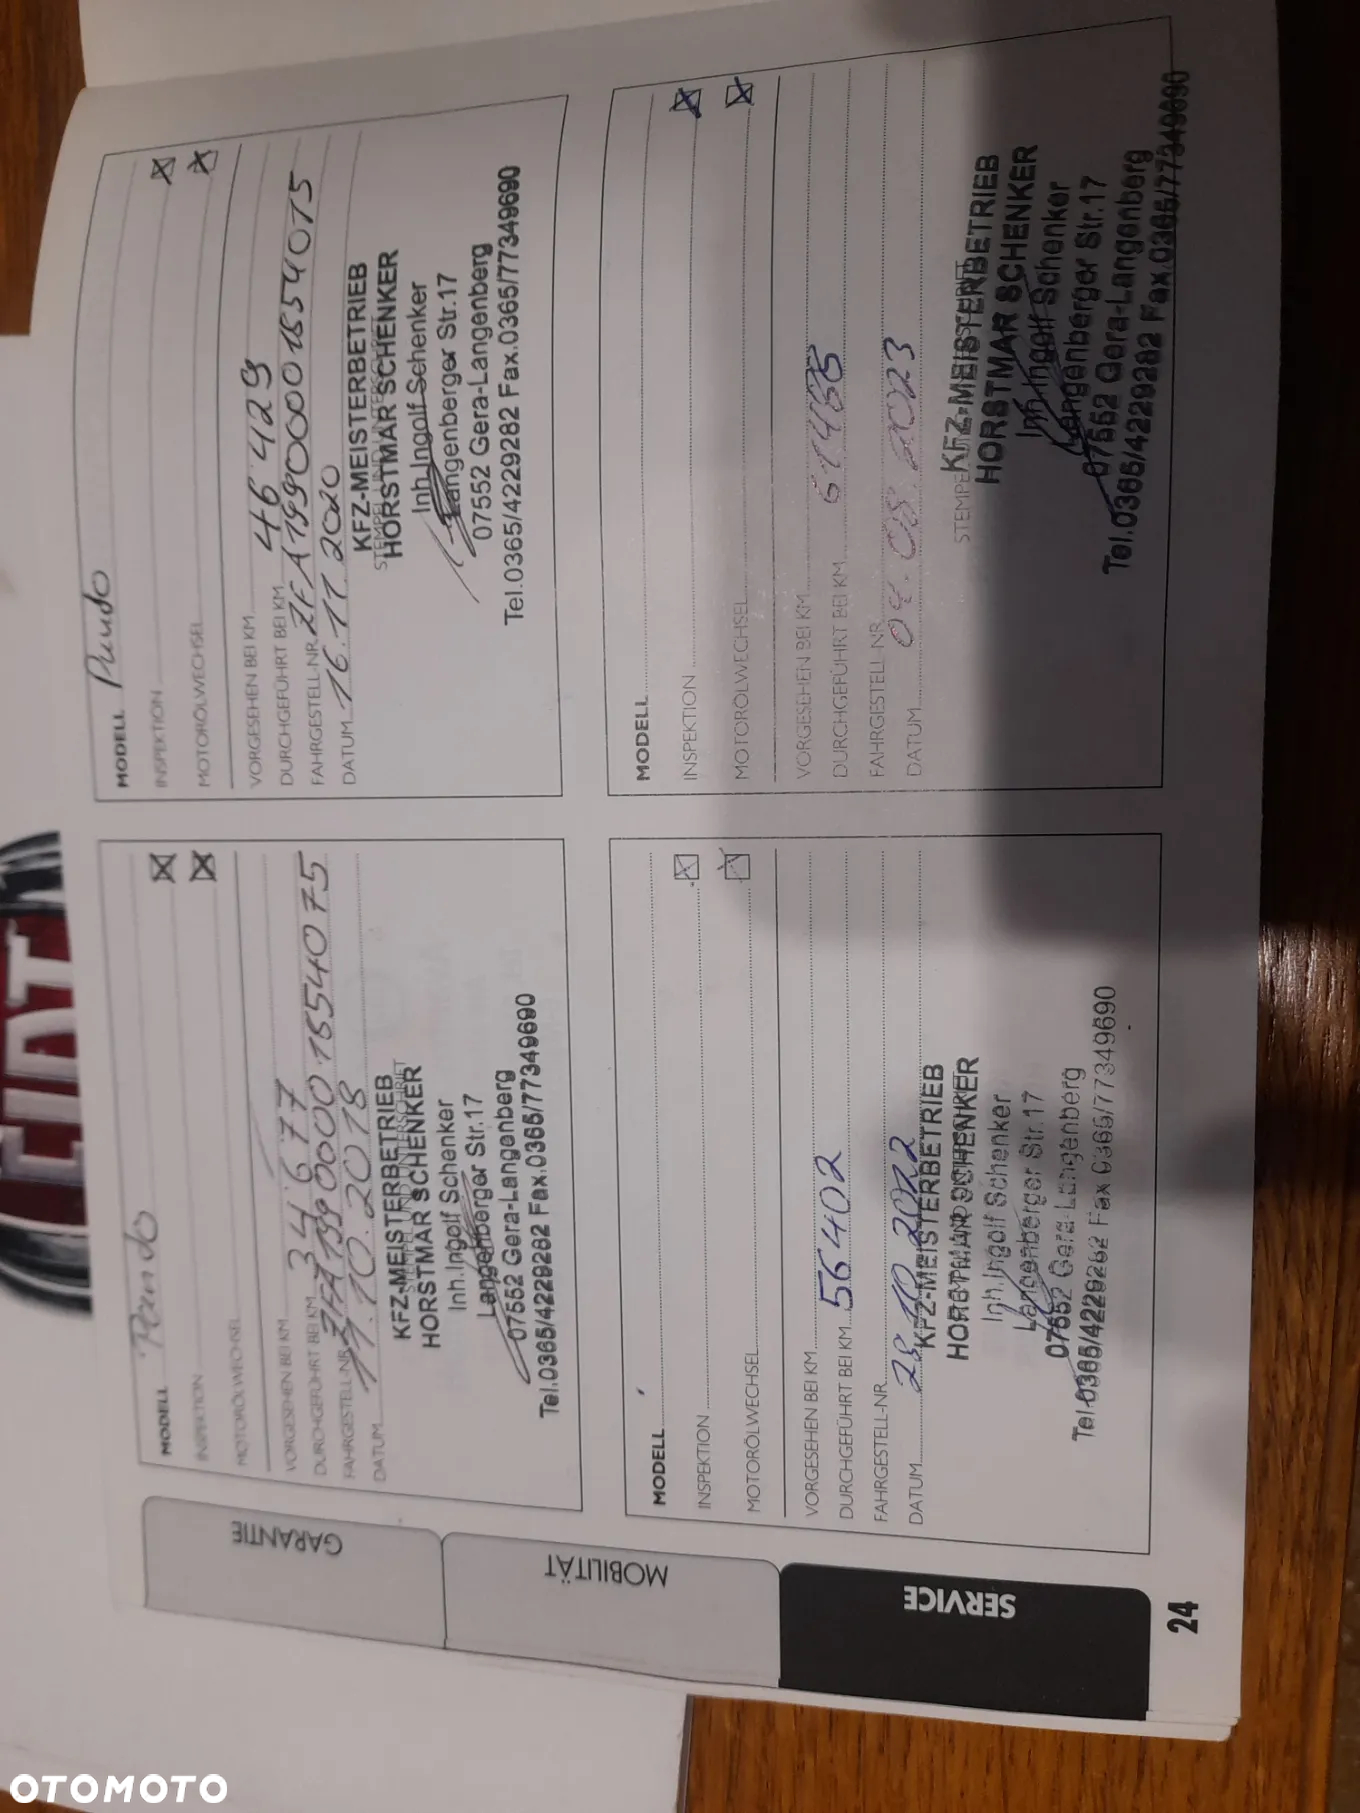 MODELL Pando
INSPEKTION
MOTORÖLWECHSEL
VORGESEHEN BEI KM
DURCHGEFÜHRT BEI KM 34677
FAHRGESTELL-NR. ZFA19900001554075
DATUM 11.10.2018
STEMPEL UND UNTERSCHRIFT
KFZ-MEISTERBETRIEB
HORSTMAR SCHENKER
Inh.Ingolf Schenker
Langenberger Str.17
07552 Gera-Langenberg
Tel.0365/4229282 Fax.0365/77349690
MODELL Pundo
INSPEKTION
MOTORÖLWECHSEL
VORGESEHEN BEI KM
DURCHGEFÜHRT BEI KM 46429
FAHRGESTELL-NR. ZFA19900001554075
DATUM 16.11.2020
STEMPEL UND UNTERSCHRIFT
KFZ-MEISTERBETRIEB
HORSTMAR SCHENKER
Inh.Ingolf Schenker
Langenberger Str.17
07552 Gera-Langenberg
Tel.0365/4229282 Fax.0365/77349690
MODELL
INSPEKTION
MOTORÖLWECHSEL
VORGESEHEN BEI KM
DURCHGEFÜHRT BEI KM 56402
FAHRGESTELL-NR.
DATUM 28.10.2022
KFZ-MEISTERBETRIEB
HORSTMAR SCHENKER
Inh.Ingolf Schenker
Langenberger Str.17
07552 Gera-Langenberg
Tel.0365/4229282 Fax.0365/77349690
MODELL
INSPEKTION
MOTORÖLWECHSEL
VORGESEHEN BEI KM
DURCHGEFÜHRT BEI KM 61488
FAHRGESTELL-NR.
DATUM 04.08.2023
KFZ-MEISTERBETRIEB
HORSTMAR SCHENKER
Inh.Ingolf Schenker
Langenberger Str.17
07552 Gera-Langenberg
Tel.0365/4229282 Fax.0365/77349690
GARANTIE
MOBILITÄT
SERVICE
24
OTOMOTO